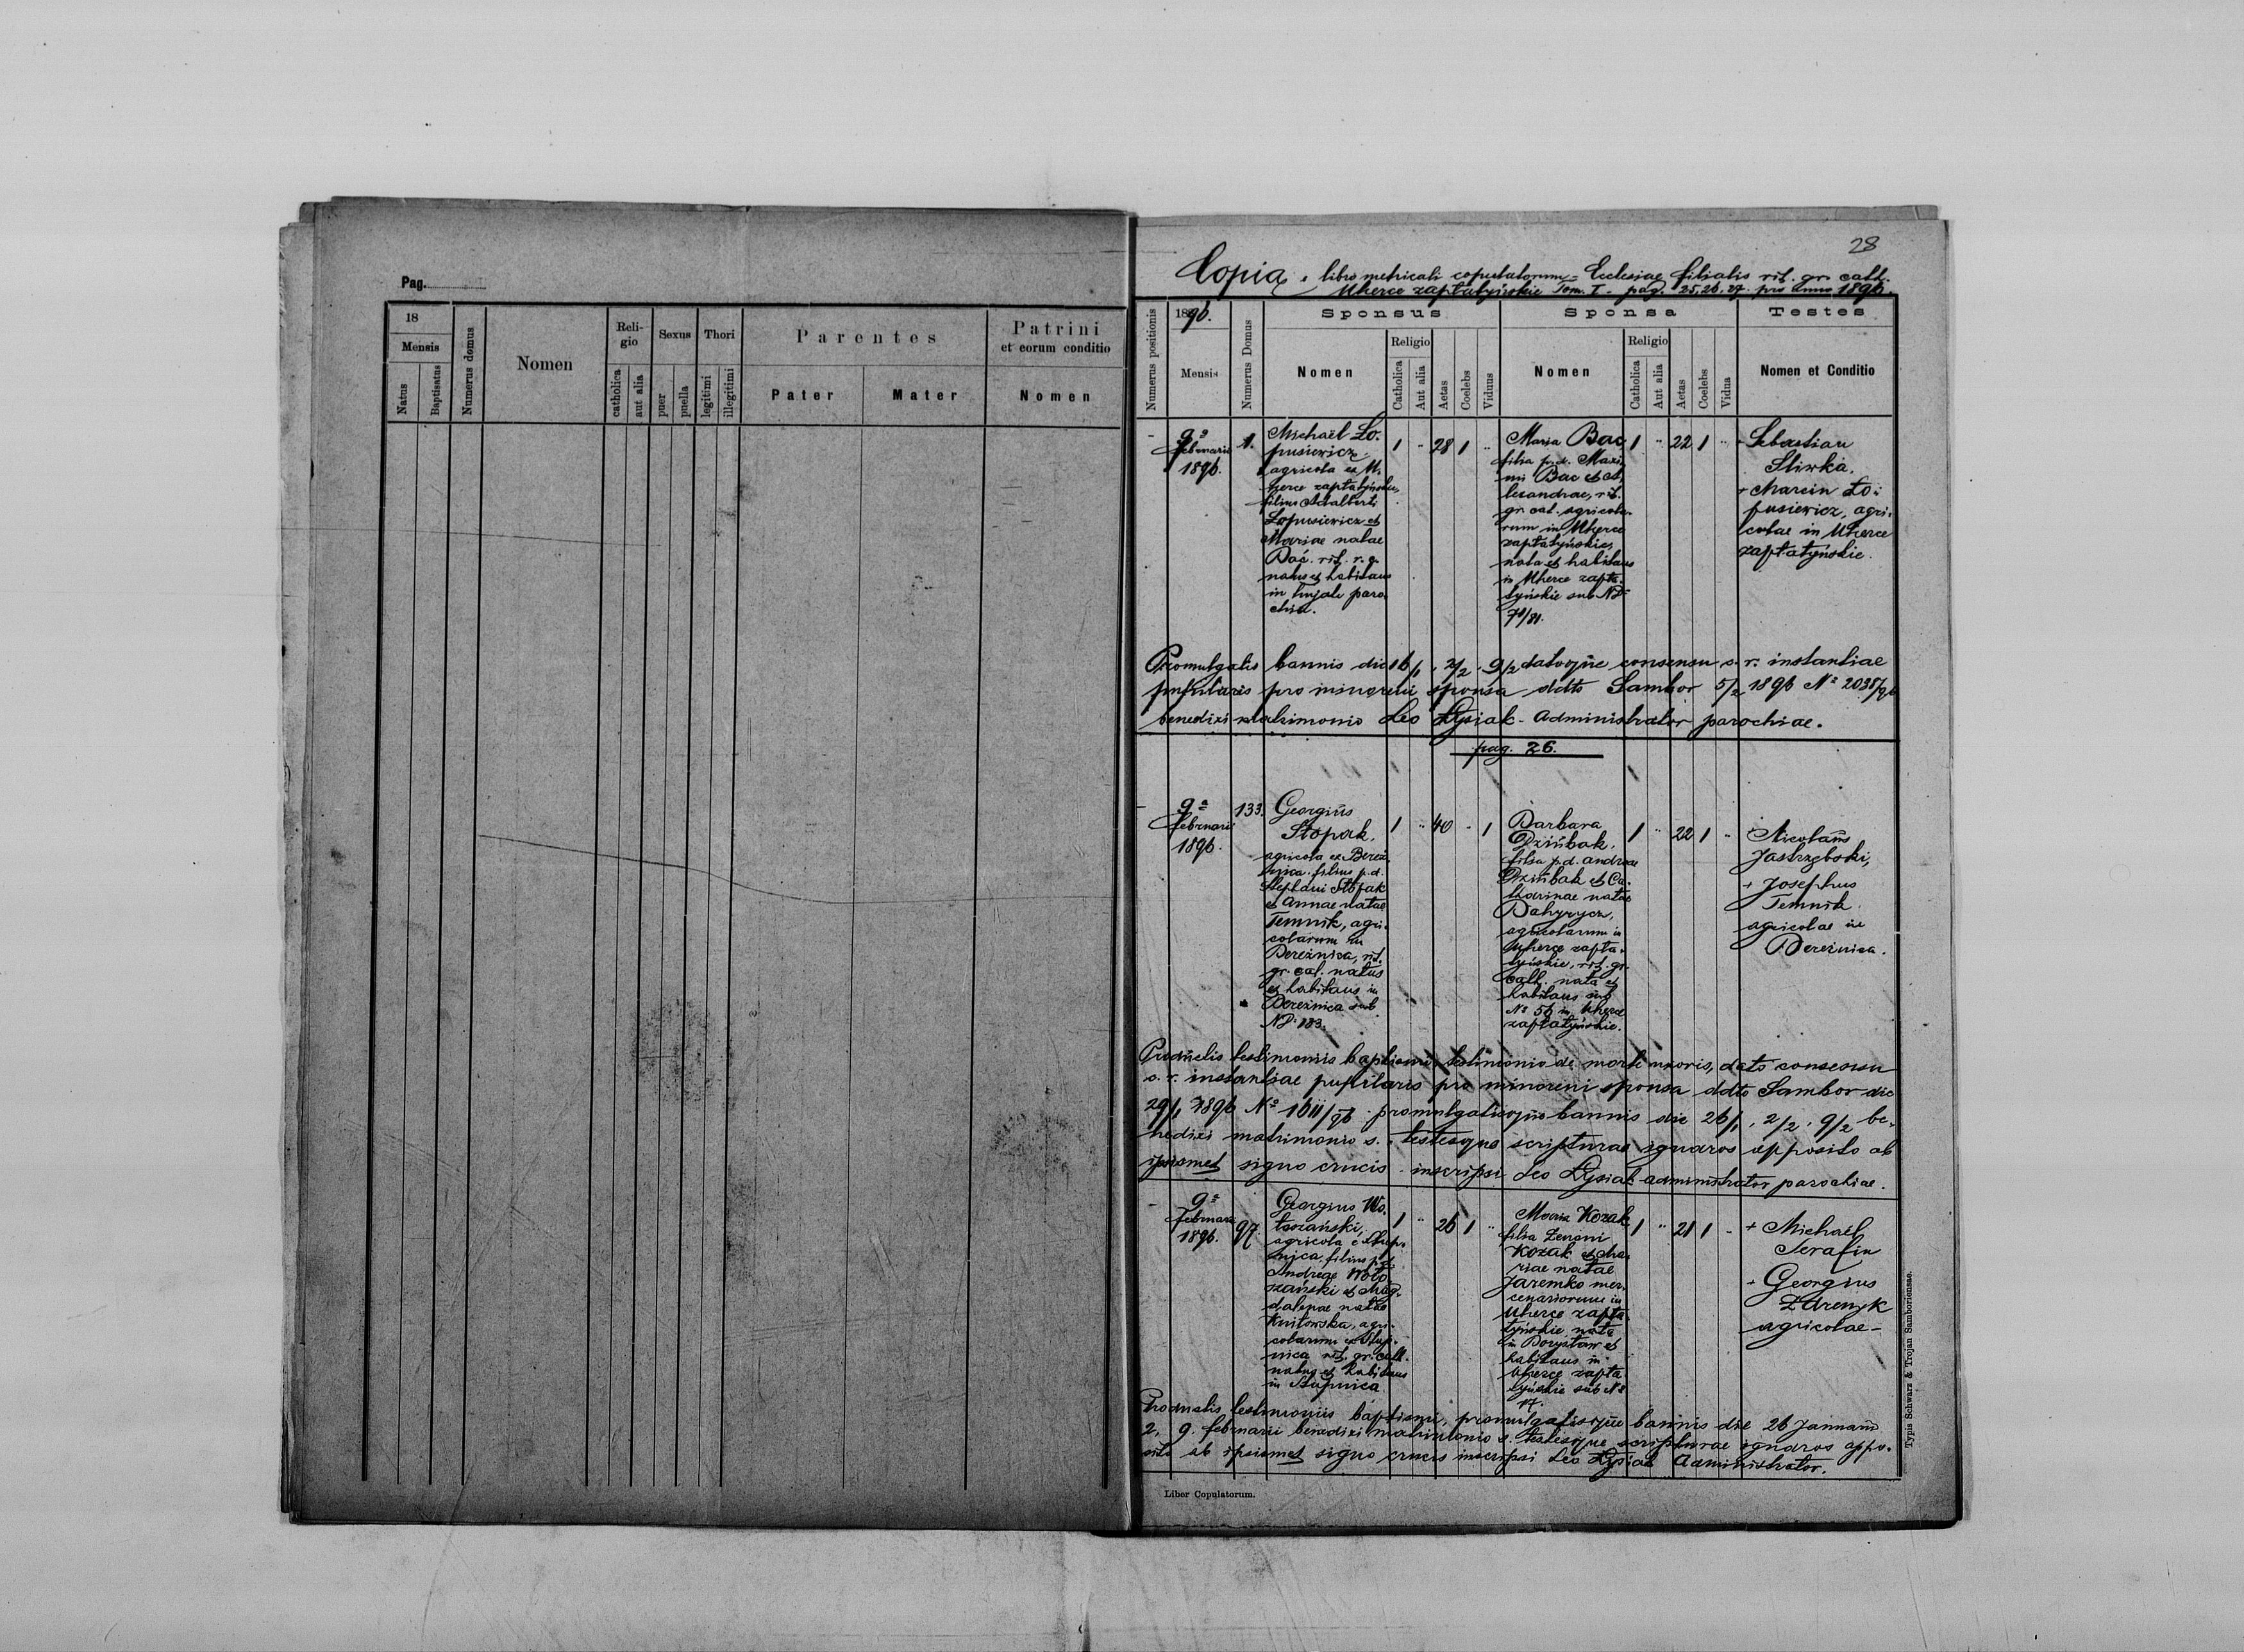 Pag.
18
Mensis
Natus
Baptisatus
Numerus domus
Nomen
Reli-
gio
catholica
aut alia
Sexus
puer
puella
Thori
legitimi
illegitimi
Parentes
Pater
Mater
Patrini
et eorum conditio
Nomen
28
Copia e libro metricali copulatorum Ecclesiae filialis rit. gr. cath.
Uherce zapłatyńskie Tom. I - pag. 25, 26, 27 pro anno 1896.
Numerus positionis
1896.
Mensis
Numerus Domus
Sponsus
Nomen
Religio
Catholica
Aut alia
Aetas
Coelebs
Viduus
Sponsa
Nomen
Religio
Catholica
Aut alia
Aetas
Coelebs
Vidua
Testes
Nomen et Conditio
9a
februarii
1896.
1.
Michaël Ło-
pusiewicz
agricola ex U-
herce zapłatyńskie,
filius Adalberti
Łopusiewicz et
Mariae natae
Bac. rit. r. c.
natus et habitans
in hujate paro
chia.
1 " 28 1 "
Maria Bac
filia p.d. Maxi
mi Bac et A-
lexandrae, rit.
gr. cat. agricola-
rum in Uherce
zapłatyńskie,
nata et habitans
in Uherce zapła-
tyńskie sub Nd
71/81.
1 " 22 1 "
+ Sebastian
Sliwka.
+ Marcin Ło-
pusiewicz, agri-
colae in Uherce
zapłatyńskie.
Promulgatis bannis die 26/1, 2/2, 9/2 datoque consensu c. r. instantiae
pupilaris pro minoreni sponsa ddto Sambor 5/2 1896 No 2038/96
benedixi matrimonio Leo Łysiak - Administrator parochiae.
pag. 26.
9a
februarii
1896.
133.
Georgius
Stopak,
agricola ex Bereź
nica filius p.d.
Stephani Stopak
et Annae natae
Temnik, agri-
colarum in
Bereźnica, rit.
gr. cat. natus
et habitans in
Bereźnica sub
Nd 133.
1 " 40 " 1
Barbara
Dziubak,
filia p.d. Andreae
Dziubak et Ca-
tharinae natae
Bahyrycz,
agricolarum in
Uherce zapła-
tyńskie, rit. gr.
cath. nata et
habitans sub
No 56 in Uherce
zapłatyńskie.
1 " 22 1 "
+ Nicolaus
Jastrzębski,
+ Josephus
Temnik
agricolae in
Bereźnica.
Productis testimoniis baptismi, testimonio de morte uxoris, dato consensu
c. r. instantiae pupilaris pro minoreni sponsa ddto Sambor die
29/1 1896 No 1611/96 promulgatisque bannis die 26/1, 2/2, 9/2 be-
nedixi matrimonio s. testesque scripturae ignaros apposito ab
ipsismet signo crucis inscripsi Leo Łysiak administrator parochiae.
9a
Februarii
1896.
97
Georgius Wo-
łoszański,
agricola e Stup-
nica, filius p.d.
Andreae Woło-
szański et Mag-
dalenae natae
Kuitowska, agri-
colarum ex Stup-
nica rit. gr. cath.
natus et habitans
in Stupnica
1 " 26 1 "
Maria Kozak
filia Zenoni
Kozak et Ma-
riae natae
Jaremko mer-
cenariorum in
Uherce zapła-
tyńskie nata
in Borysław et
habitans in
Uherce zapła
tyńskie sub No
17.
1 " 21 1 "
+ Michaël
Serafin
+ Georgius
agricolae -
Productis testimoniis baptismi, promulgatisque bannis die 26 Januarii
2, 9. februarii benedixi matrimonio s. testesque scripturae ignaros appo-
sito ab ipsismet signo crucis inscripsi Leo Łysiak Administrator.
Liber Copulatorum.
Typis Schwarz & Trojan Samboriensae.